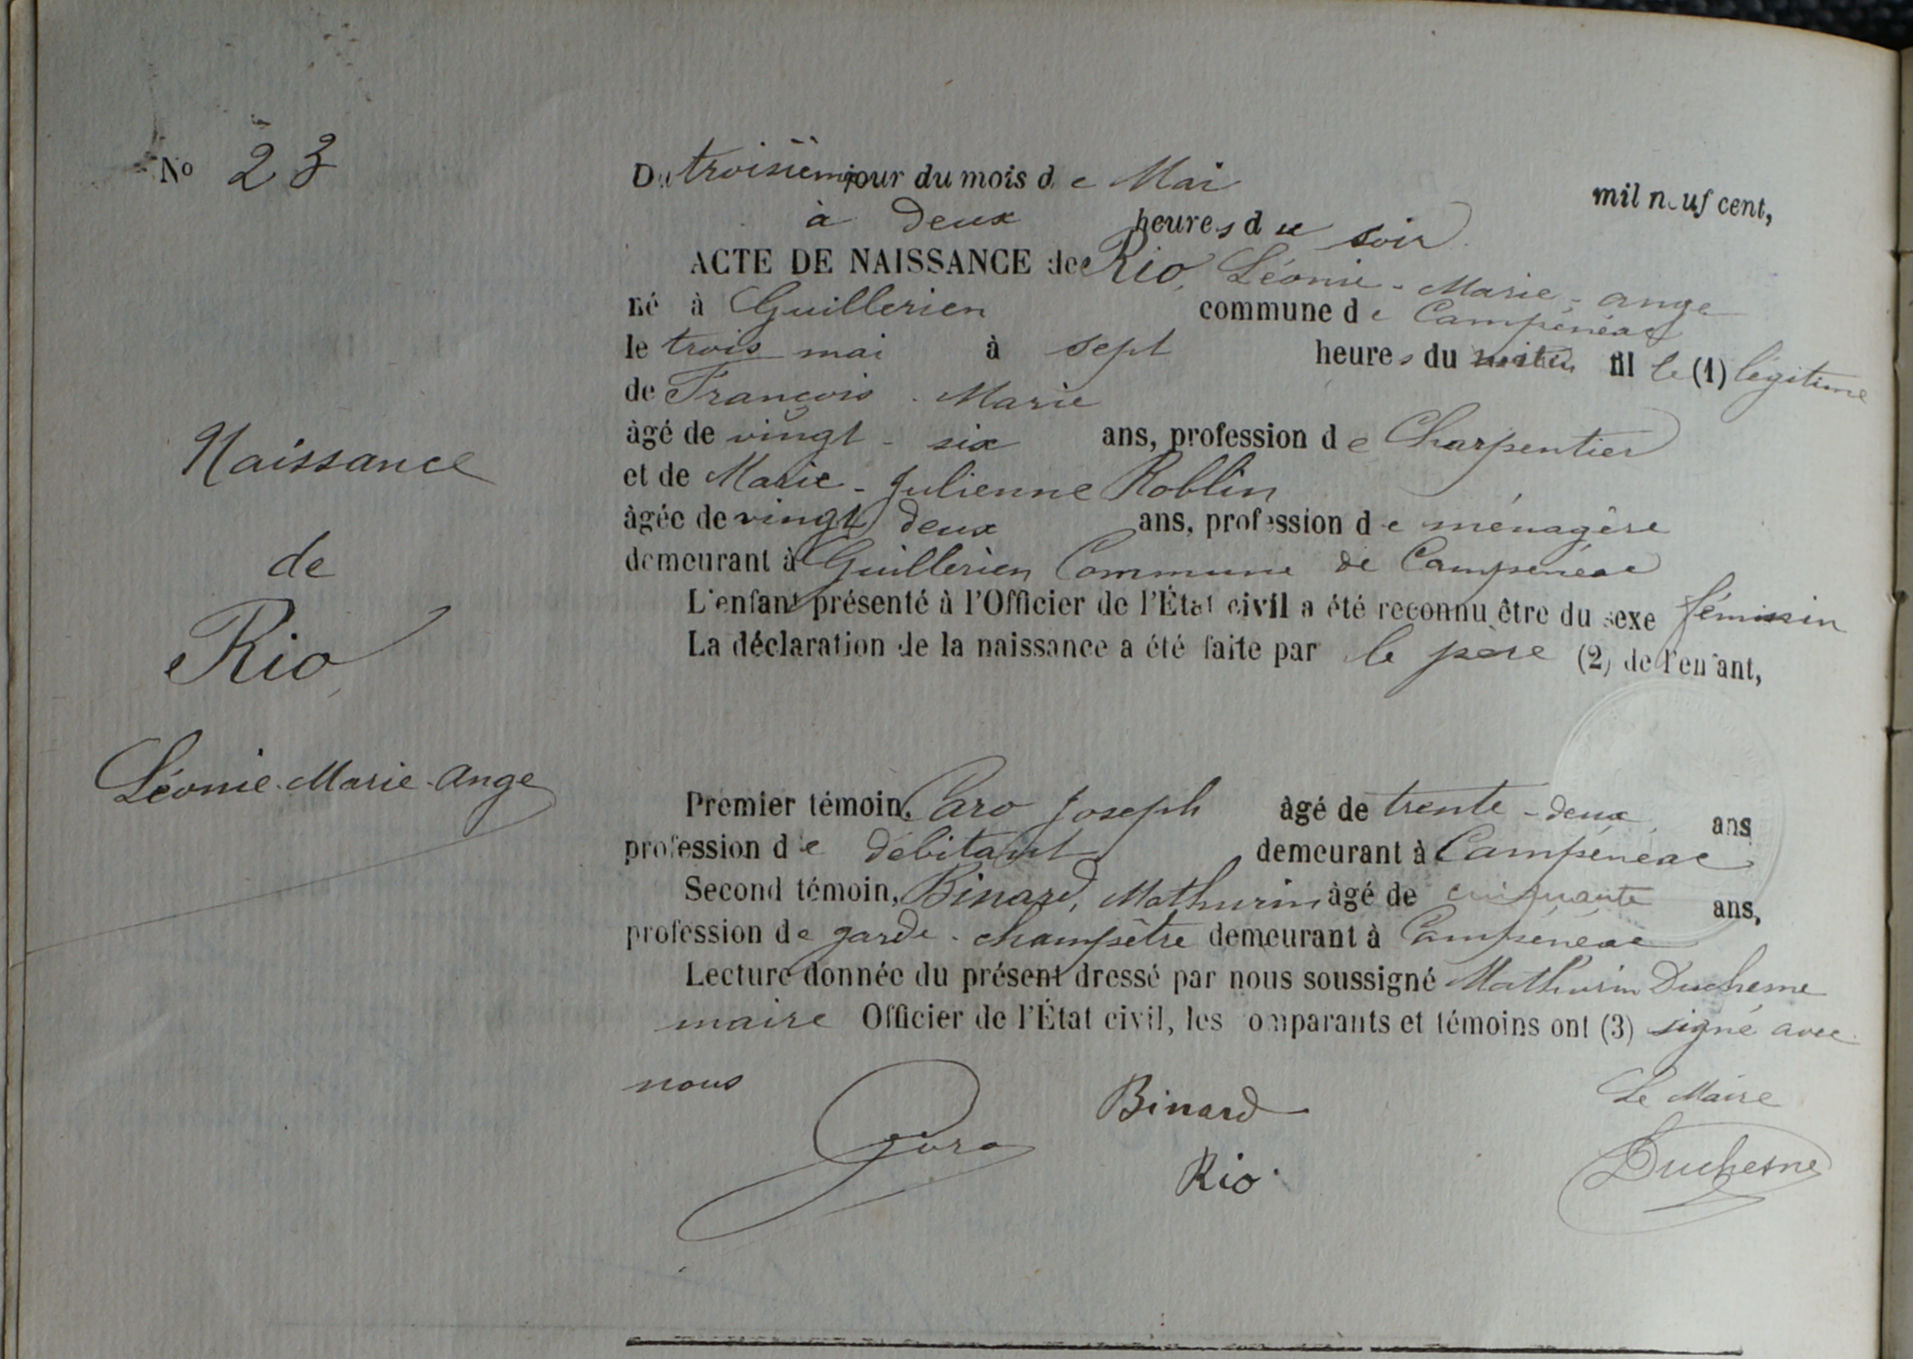 No 23
Naissance
de
Rio
Léonie-Marie-Ange
Du troisième jour du mois de Mai mil neuf cent,
à deux heures du soir
ACTE DE NAISSANCE de Rio, Léonie-Marie-ange
né à Guillerien commune de Campénéac
le trois mai à sept heures du matin fille (1) légitime
de François-Marie
âgé de vingt-six ans, profession de Charpentier
et de Marie-Julienne Roblin
âgée de vingt deux ans, profession de ménagère
demeurant à Guillerien Commune de Campénéac
L'enfant présenté à l'Officier de l'État civil a été reconnu être du sexe féminin
La déclaration de la naissance a été faite par le père (2) de l'enfant,
Premier témoin, Caro Joseph âgé de trente-deux ans
profession de débitant demeurant à Campénéac
Second témoin, Binard, Mathurin âgé de cinquante ans,
profession de garde-champêtre demeurant à Campénéac
Lecture donnée du présent dressé par nous soussigné Mathurin Duchesne
maire Officier de l'État civil, les comparants et témoins ont (3) signé avec
nous
Caro Binard Le Maire
Rio Duchesne